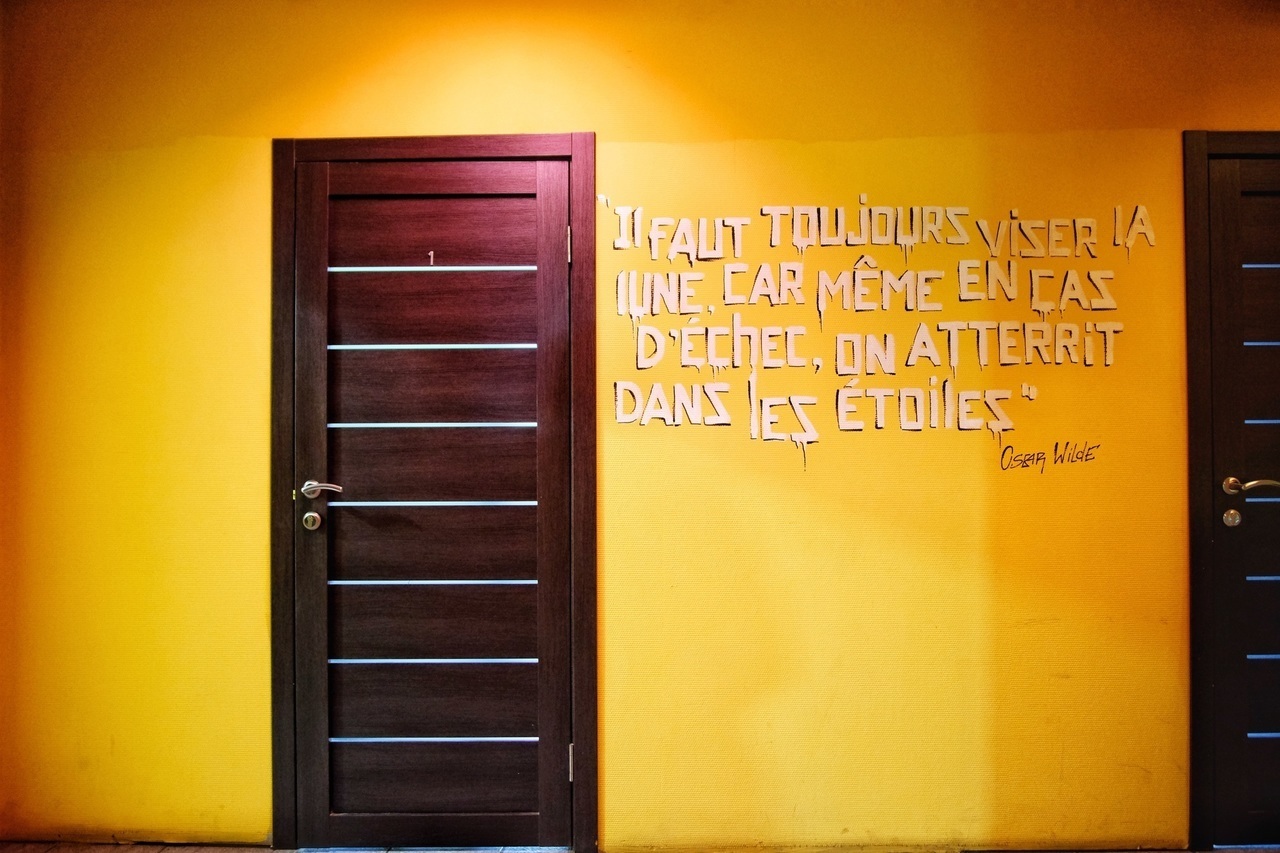 1
"Il FAUT TOUjOURS ViSER lA
lUNE, CAR MÊME EN ÇAS
D'ÉChEC, ON ATTERRiT
DANS lES ÉTOilES"
OSCAR WildE